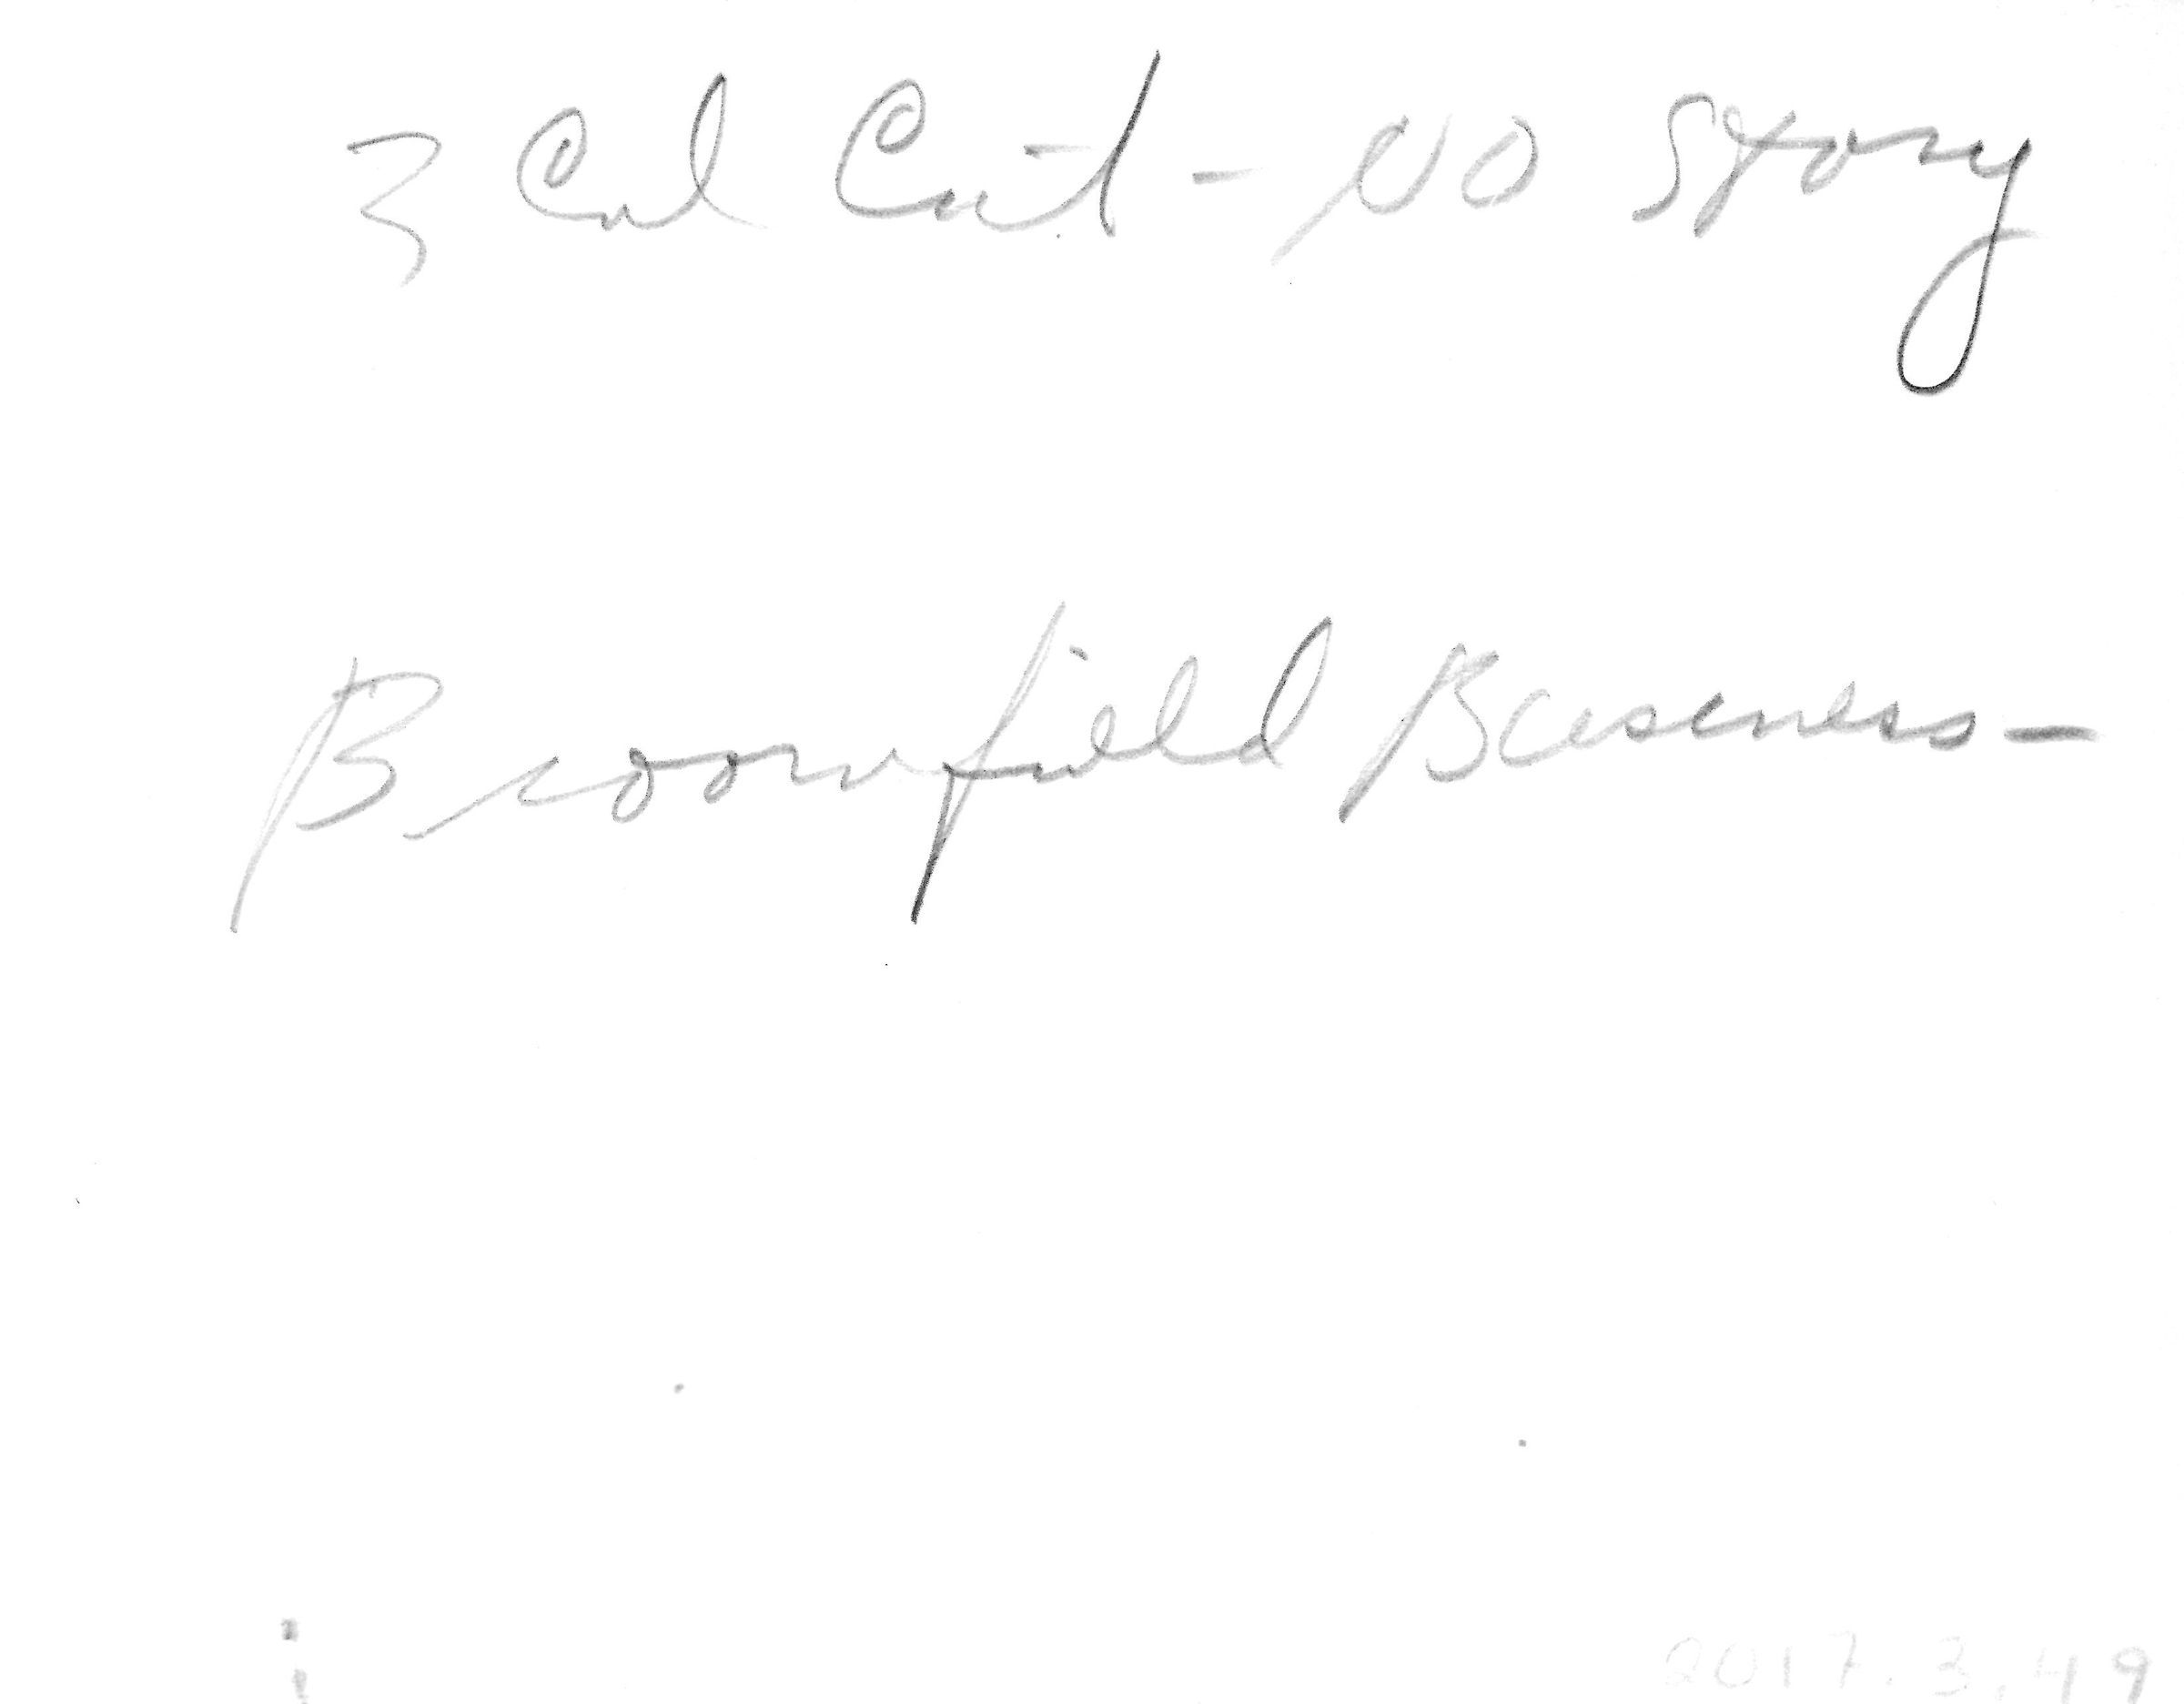 3 Col Cut - NO Story
Broomfield Business -
2017.3.49